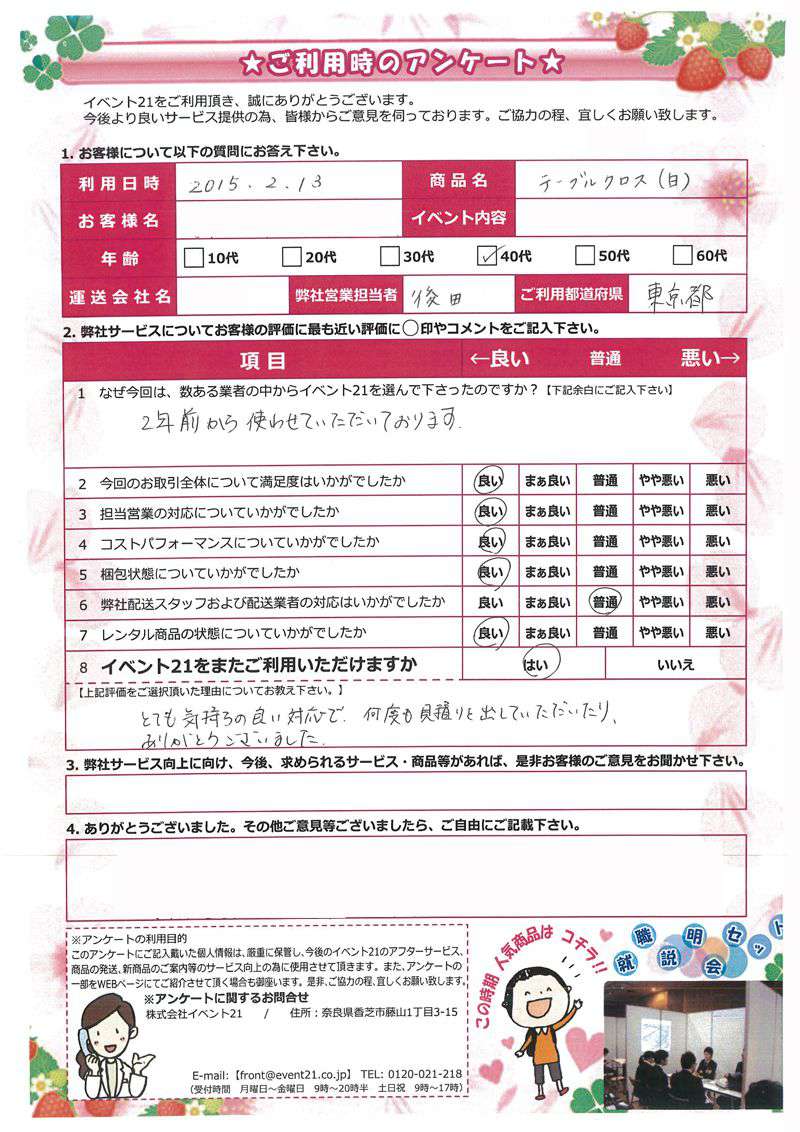 ★ご利用時のアンケート★
イベント21をご利用頂き、誠にありがとうございます。
今後より良いサービス提供の為、皆様からご意見を伺っております。ご協力の程、宜しくお願い致します。
1. お客様について以下の質問にお答え下さい。
利用日時 2015.2.13 商品名 テーブルクロス(白)
お客様名 イベント内容
年齢 □10代 □20代 □30代 ☑40代 □50代 □60代
運送会社名 弊社営業担当者 後田 ご利用都道府県 東京都
2. 弊社サービスについてお客様の評価に最も近い評価に○印やコメントをご記入下さい。
項目 ←良い 普通 悪い→
1 なぜ今回は、数ある業者の中からイベント21を選んで下さったのですか？【下記余白にご記入下さい】
2年前から使わせていただいております.
2 今回のお取引全体について満足度はいかがでしたか 良い まぁ良い 普通 やや悪い 悪い
3 担当営業の対応についていかがでしたか 良い まぁ良い 普通 やや悪い 悪い
4 コストパフォーマンスについていかがでしたか 良い まぁ良い 普通 やや悪い 悪い
5 梱包状態についていかがでしたか 良い まぁ良い 普通 やや悪い 悪い
6 弊社配送スタッフおよび配送業者の対応はいかがでしたか 良い まぁ良い 普通 やや悪い 悪い
7 レンタル商品の状態についていかがでしたか 良い まぁ良い 普通 やや悪い 悪い
8 イベント21をまたご利用いただけますか はい いいえ
【上記評価をご選択頂いた理由についてお教え下さい。】
とても気持ちの良い対応で、何度も見積りを出していただいたり、
ありがとうございました.
3. 弊社サービス向上に向け、今後、求められるサービス・商品等があれば、是非お客様のご意見をお聞かせ下さい。
4. ありがとうございました。その他ご意見等ございましたら、ご自由にご記載下さい。
※アンケートの利用目的
このアンケートにご記入戴いた個人情報は、厳重に保管し、今後のイベント21のアフターサービス、
商品の発送、新商品のご案内等のサービス向上の為に使用させて頂きます。また、アンケートの
一部をWEBページにてご紹介させて頂く場合も御座います。是非、ご協力の程、宜しくお願い致します。
※アンケートに関するお問合せ
株式会社イベント21 / 住所：奈良県香芝市藤山1丁目3-15
E-mail:【front@event21.co.jp】 TEL: 0120-021-218
（受付時間 月曜日～金曜日 9時～20時半 土日祝 9時～17時）
この時期 人気商品は コチラ!!
就職説明会セット